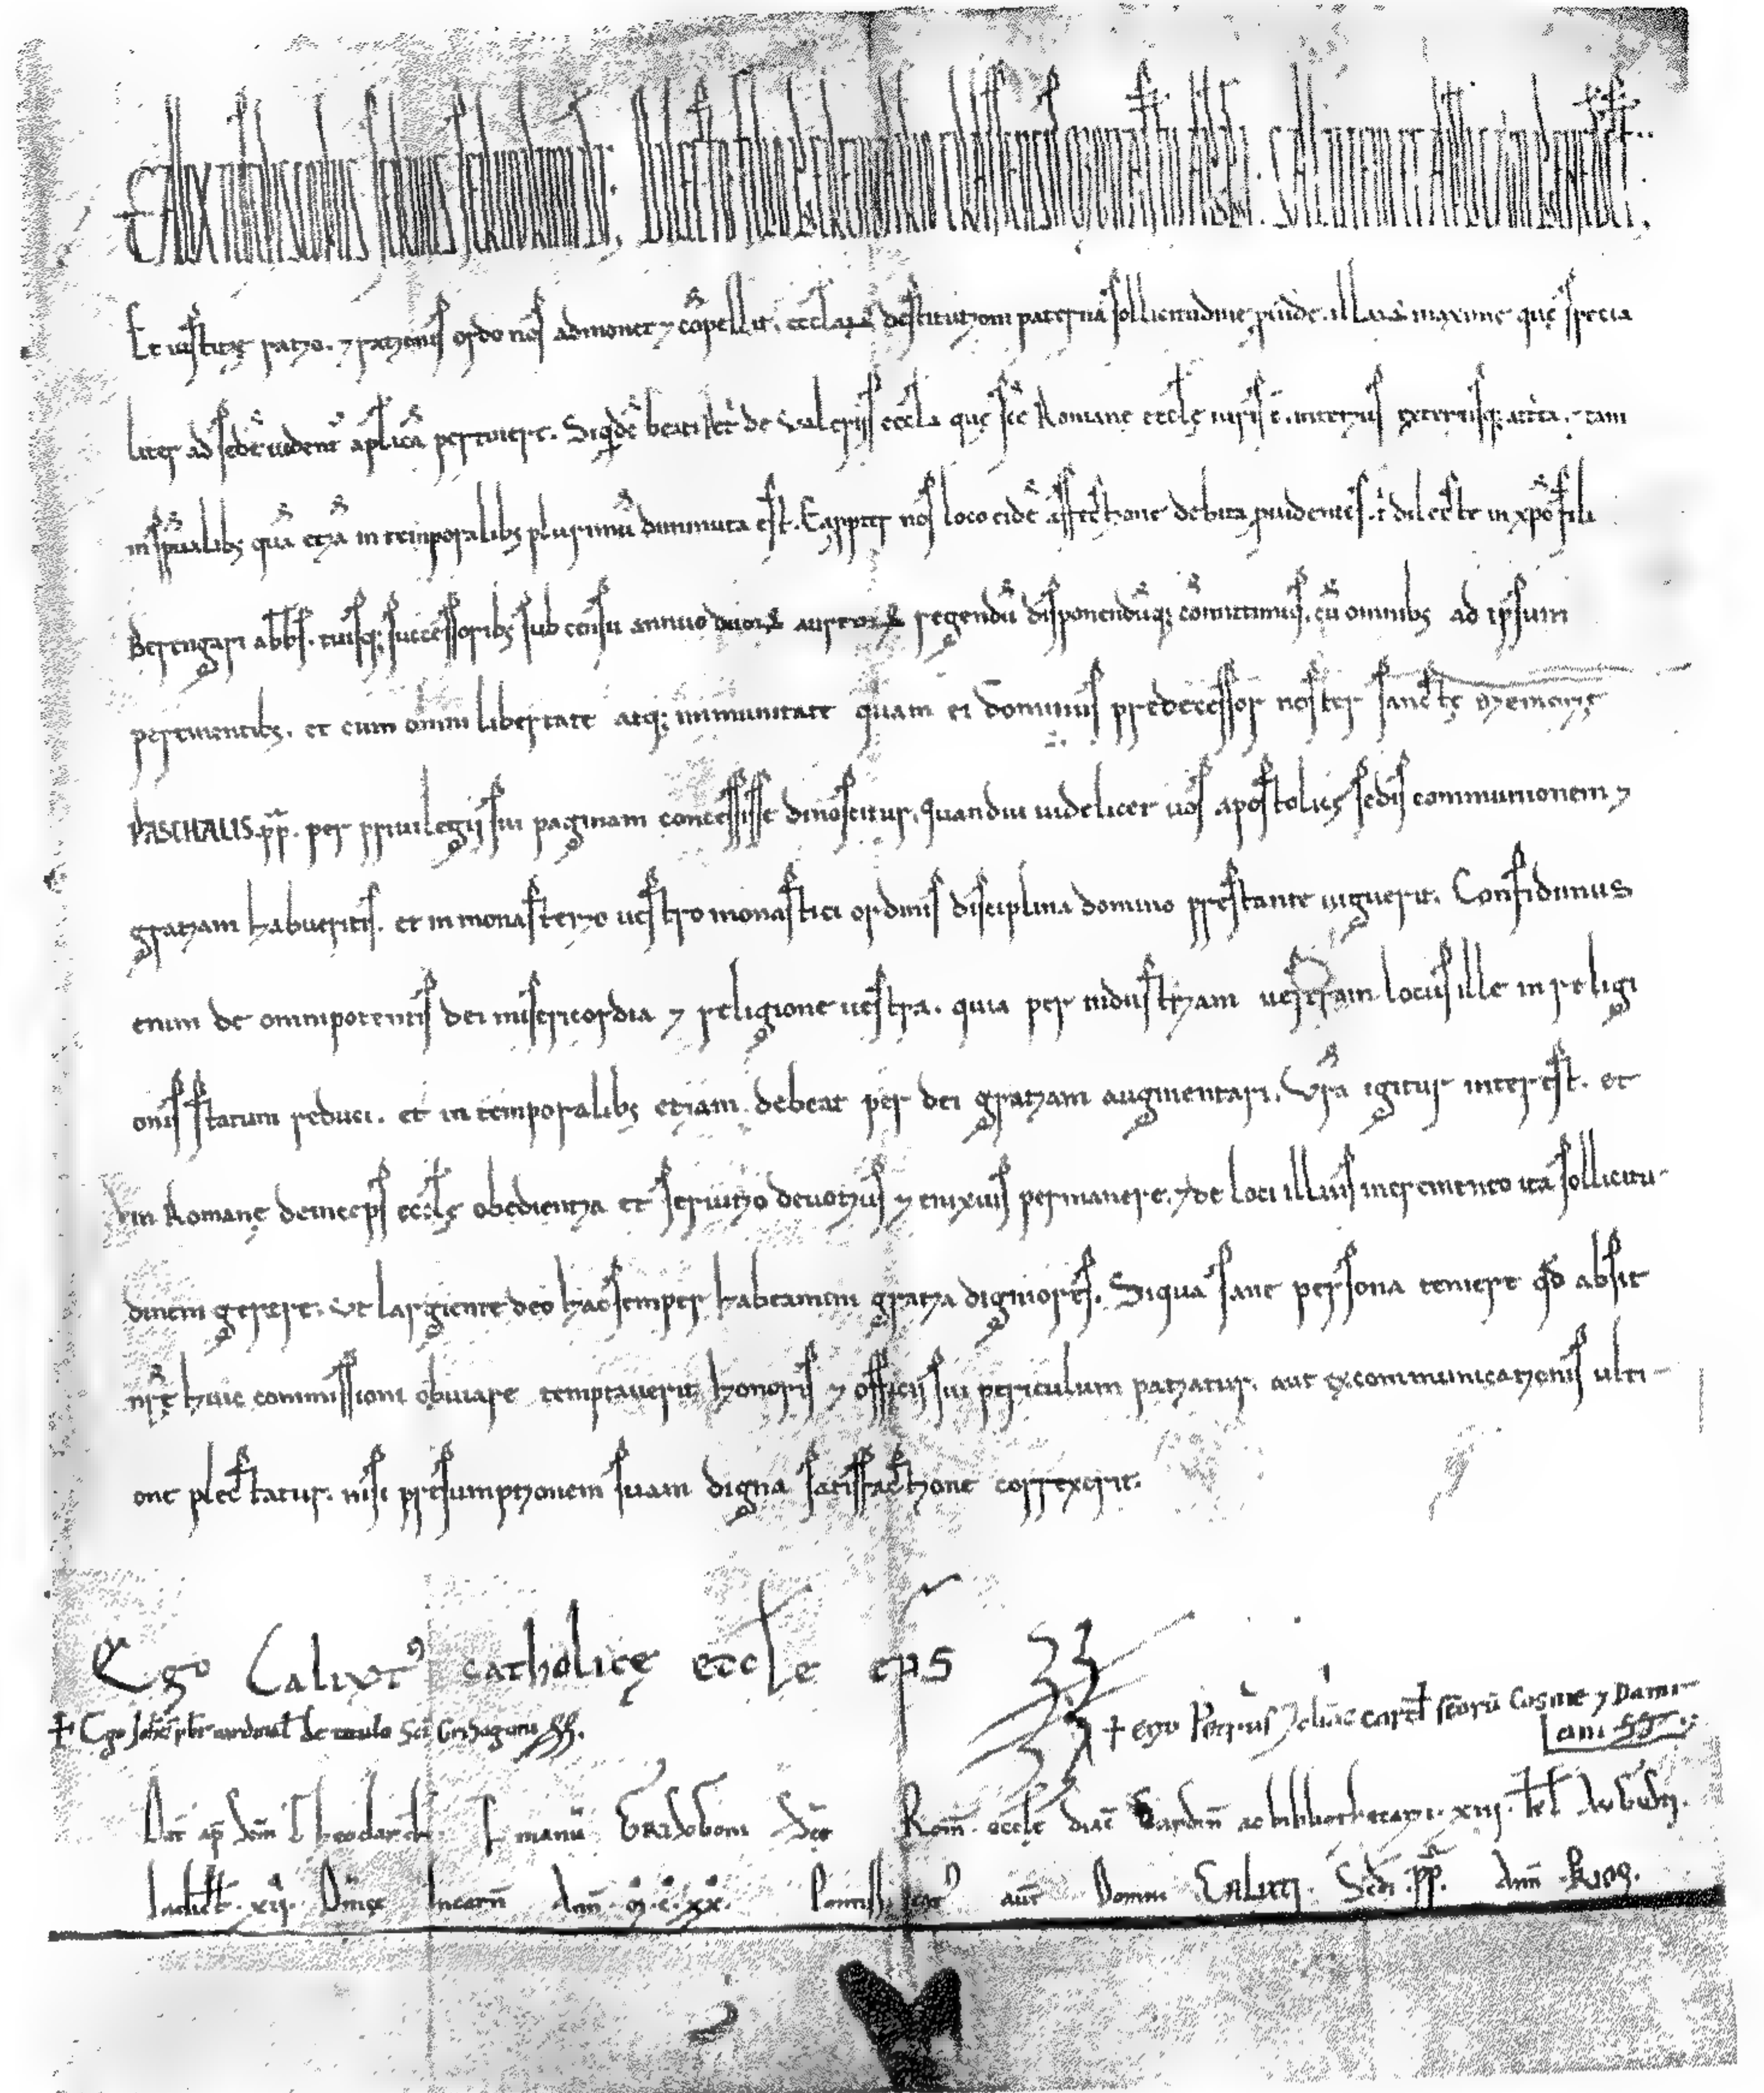 CALIXTUS EPISCOPUS SERVUS SERVORUM DEI. DILECTO FILIO BERENGARIO CRASSENSIS MONASTERII ABBATI. SALUTEM ET APLICAM BENEDICT.
Et iustitię ratio. ⁊ rationis ordo nos admonet ⁊ cōpellit. ecclarū destitutionī paterna sollicitudine puidē. illarū maxime quę specia
liter ad sedē uidentʳ aplicā pertinere. Siqdē beati petri de Valeriis eccla que scē Romane ecclę iuris ē. interius exteriusq; attrita. tam
in spūalibꝫ quā etiā in temporalibꝫ plurimū diminuta est. Eapptер nos loco eidē affectione debita puidentes. t̄ dilecte in xpō fili
Berengari abbs. tuisq; successoribꝫ sub censu annuo duoꝝ aureoꝝ regendū disponendūq; cōmittimus. cū omnibꝫ ad ipsum
pertinentibꝫ. et cum omni libertate atq; immunitate quam ei dominus predecessor noster sanctę memorię
PASCHALIS. pp̄. per priuilegii sui paginam concessisse dinoscitur. Quandiu uidelicet uos apostolicę sedis communionem ⁊
gratiam habueritis. et in monasterio uestro monastici ordinis disciplina domino prestante uiguerit. Confidimus
enim de omnipotentis dei misericordia ⁊ religione uestra. quia per industriam uestram locus ille in religi
onis statum reduci. et in temporalibꝫ etiam debeat per dei gratiam augmentari. Vrā igitur interest. et
in Romanę deinceps ecclę obedientia et seruitio deuotius ⁊ enixius permanere. ⁊ de loci illius incremento ita sollicitu-
dinem gerere. Vt largiente deo hac semper habeamini gratia digniores. Siqua sane persona temere qd absit
nrę huic commissioni obuiare temptauerit. honoris ⁊ officii sui periculum patiatur. aut excommunicationis ulti-
one plectatur. nisi presumptionem suam digna satisfactione correxerit.
Ego Calixtꝰ catholicę eccle eps SS
+ Ego Johs pbr cardinal de titulo Sci Grisogoni SS.
+ ego Petrus diac card scōrū Cosme ⁊ Dami
ani SS
Dat ap sm̄ Theodardū. p manū Grisogoni Sce Rom̄. eccle diac Cardin ac bibliothecarii. xiii. kl
Indict. xii. Dn̄icę Incarn̄ Ann̄. M. C. XX. Pontif. aut Domni Calixti. Sedi. pp̄. Ann̄